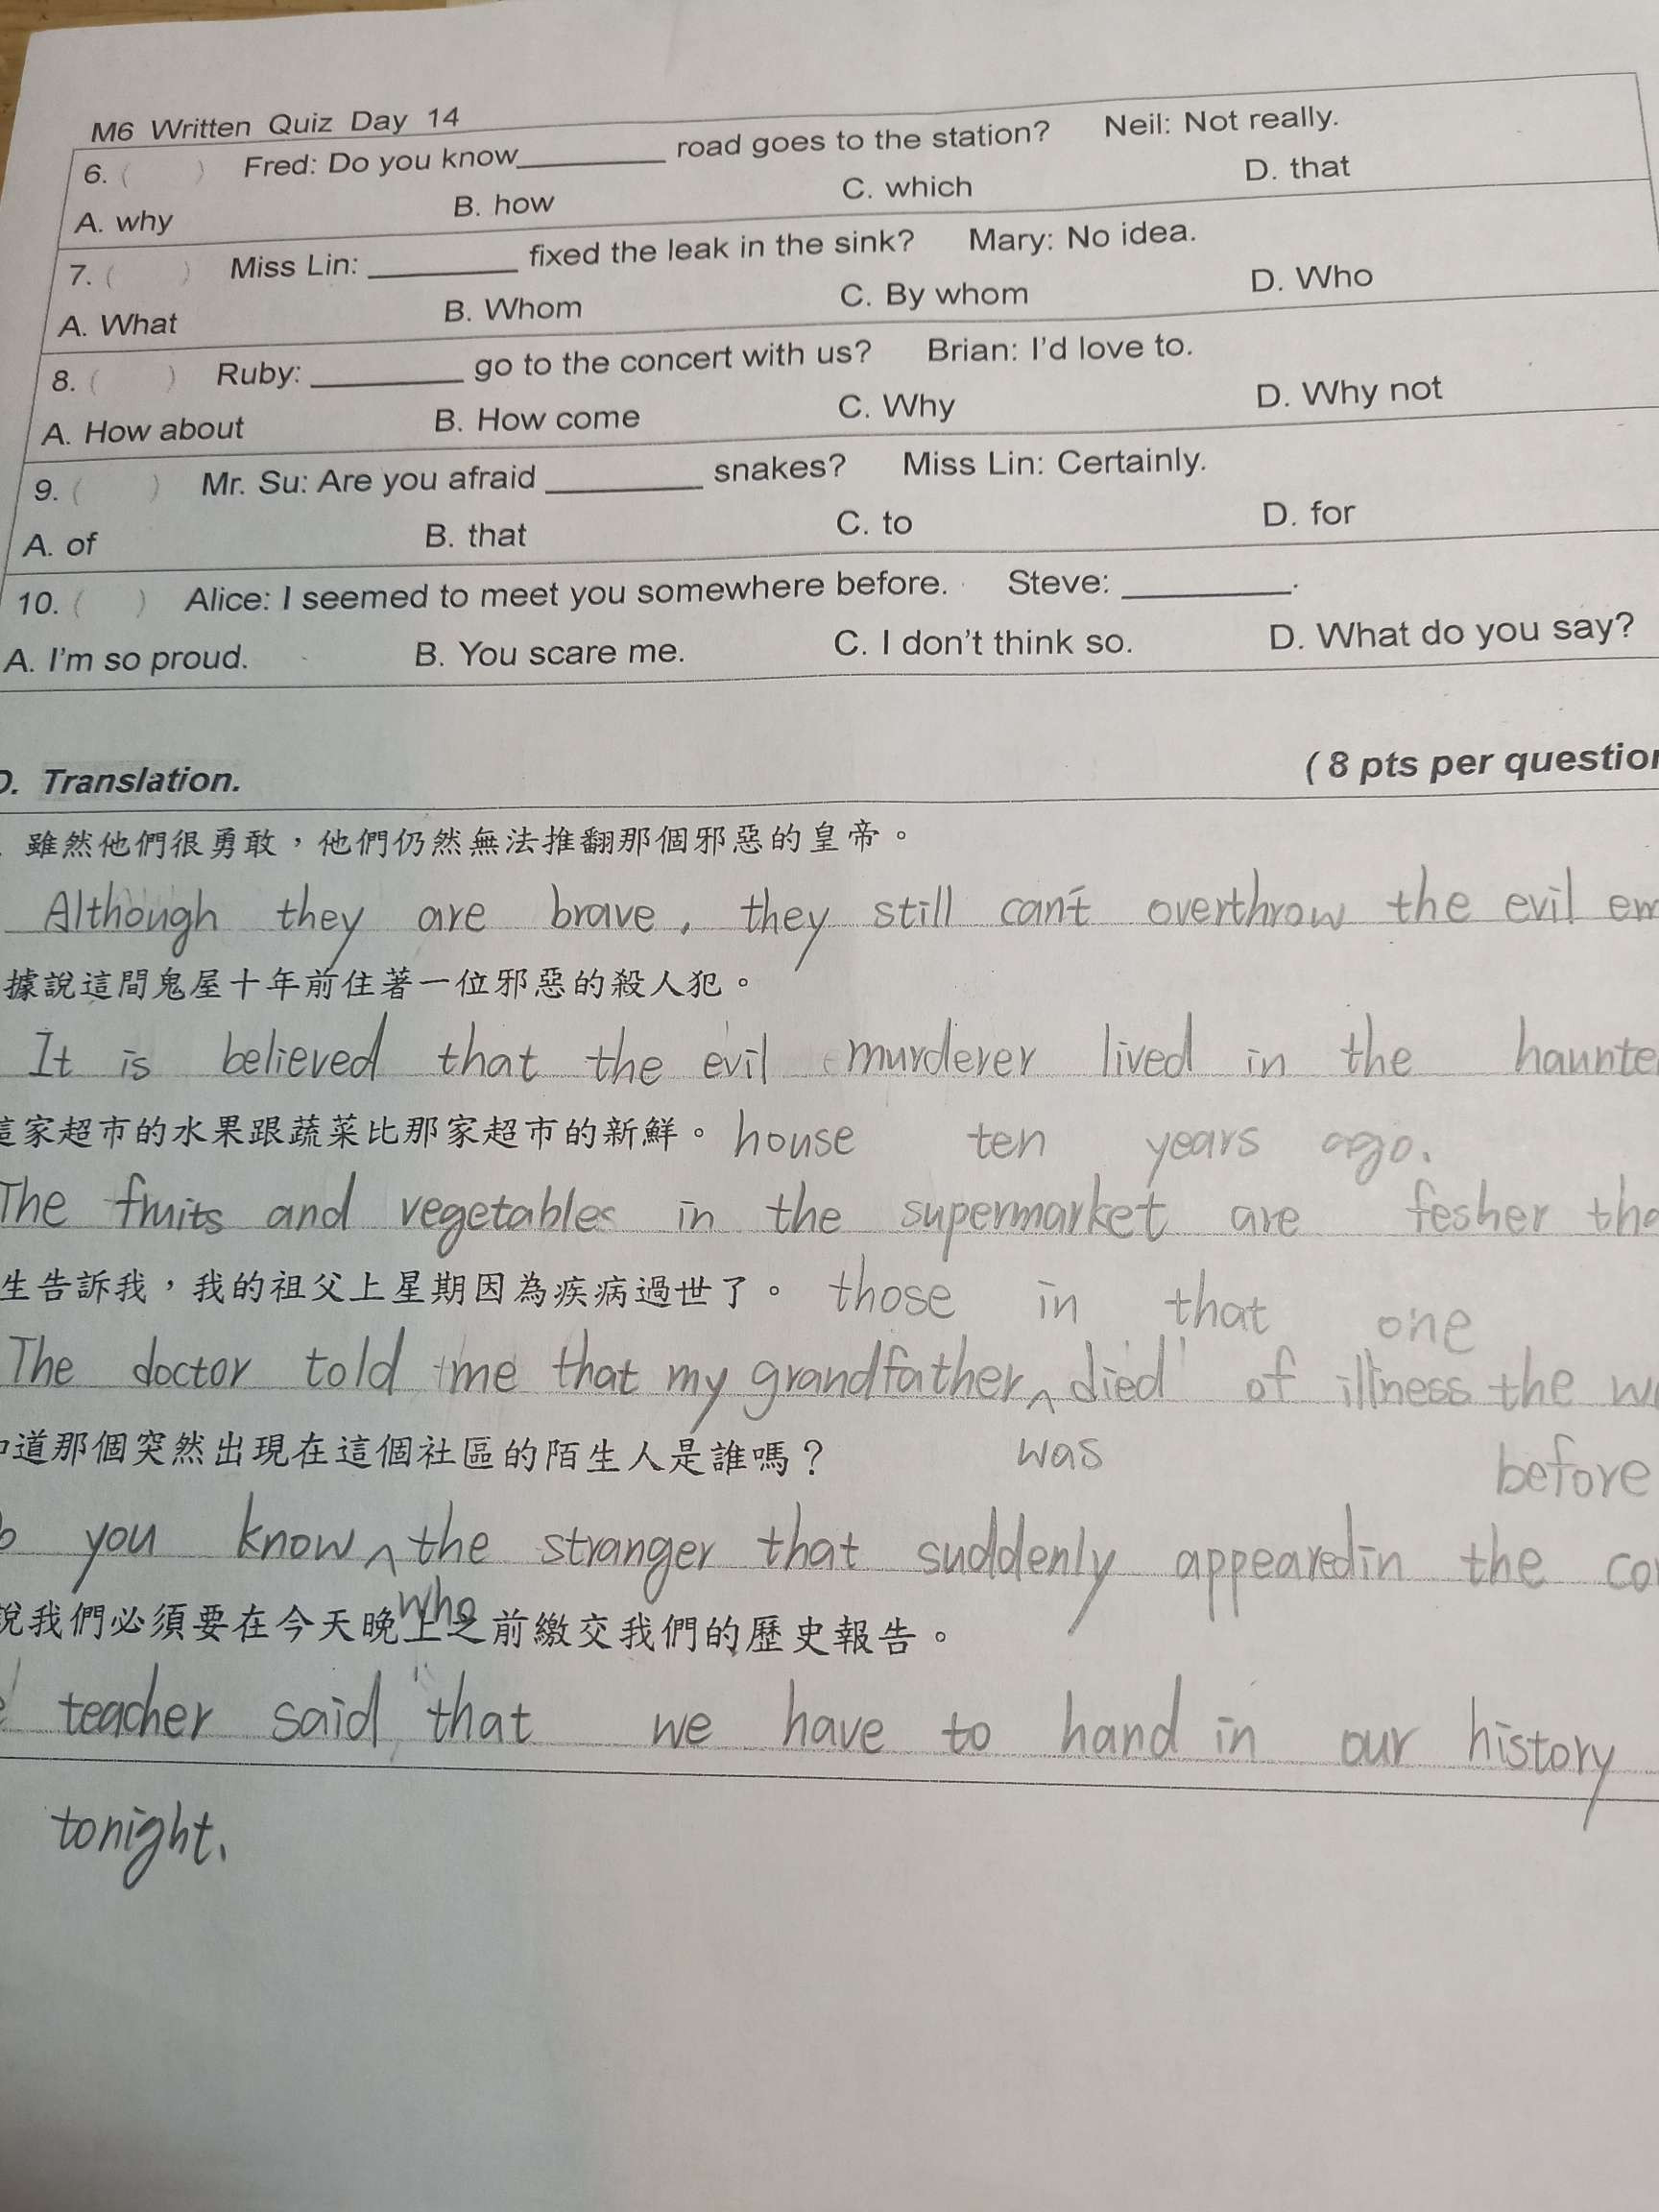 M6 Written Quiz Day 14
6. ( ) Fred: Do you know_________ road goes to the station? Neil: Not really.
A. why B. how C. which D. that
7. ( ) Miss Lin: _________ fixed the leak in the sink? Mary: No idea.
A. What B. Whom C. By whom D. Who
8. ( ) Ruby: _________ go to the concert with us? Brian: I'd love to.
A. How about B. How come C. Why D. Why not
9. ( ) Mr. Su: Are you afraid _________ snakes? Miss Lin: Certainly.
A. of B. that C. to D. for
10. ( ) Alice: I seemed to meet you somewhere before. Steve: __________.
A. I'm so proud. B. You scare me. C. I don't think so. D. What do you say?
D. Translation. ( 8 pts per question
雖然他們很勇敢，他們仍然無法推翻那個邪惡的皇帝。
Although they are brave, they still can't overthrow the evil em
據說這間鬼屋十年前住著一位邪惡的殺人犯。
It is believed that the evil murderer lived in the haunte
這家超市的水果跟蔬菜比那家超市的新鮮。 house ten years ago.
The fruits and vegetables in the supermarket are fesher tha
生告訴我，我的祖父上星期因為疾病過世了。 those in that one
The doctor told me that my grandfather ^ died of illness the we
知道那個突然出現在這個社區的陌生人是誰嗎？ was before
you know ^ the stranger that suddenly appeared in the co
who
說我們必須要在今天晚上之前繳交我們的歷史報告。
teacher said that we have to hand in our history
tonight.